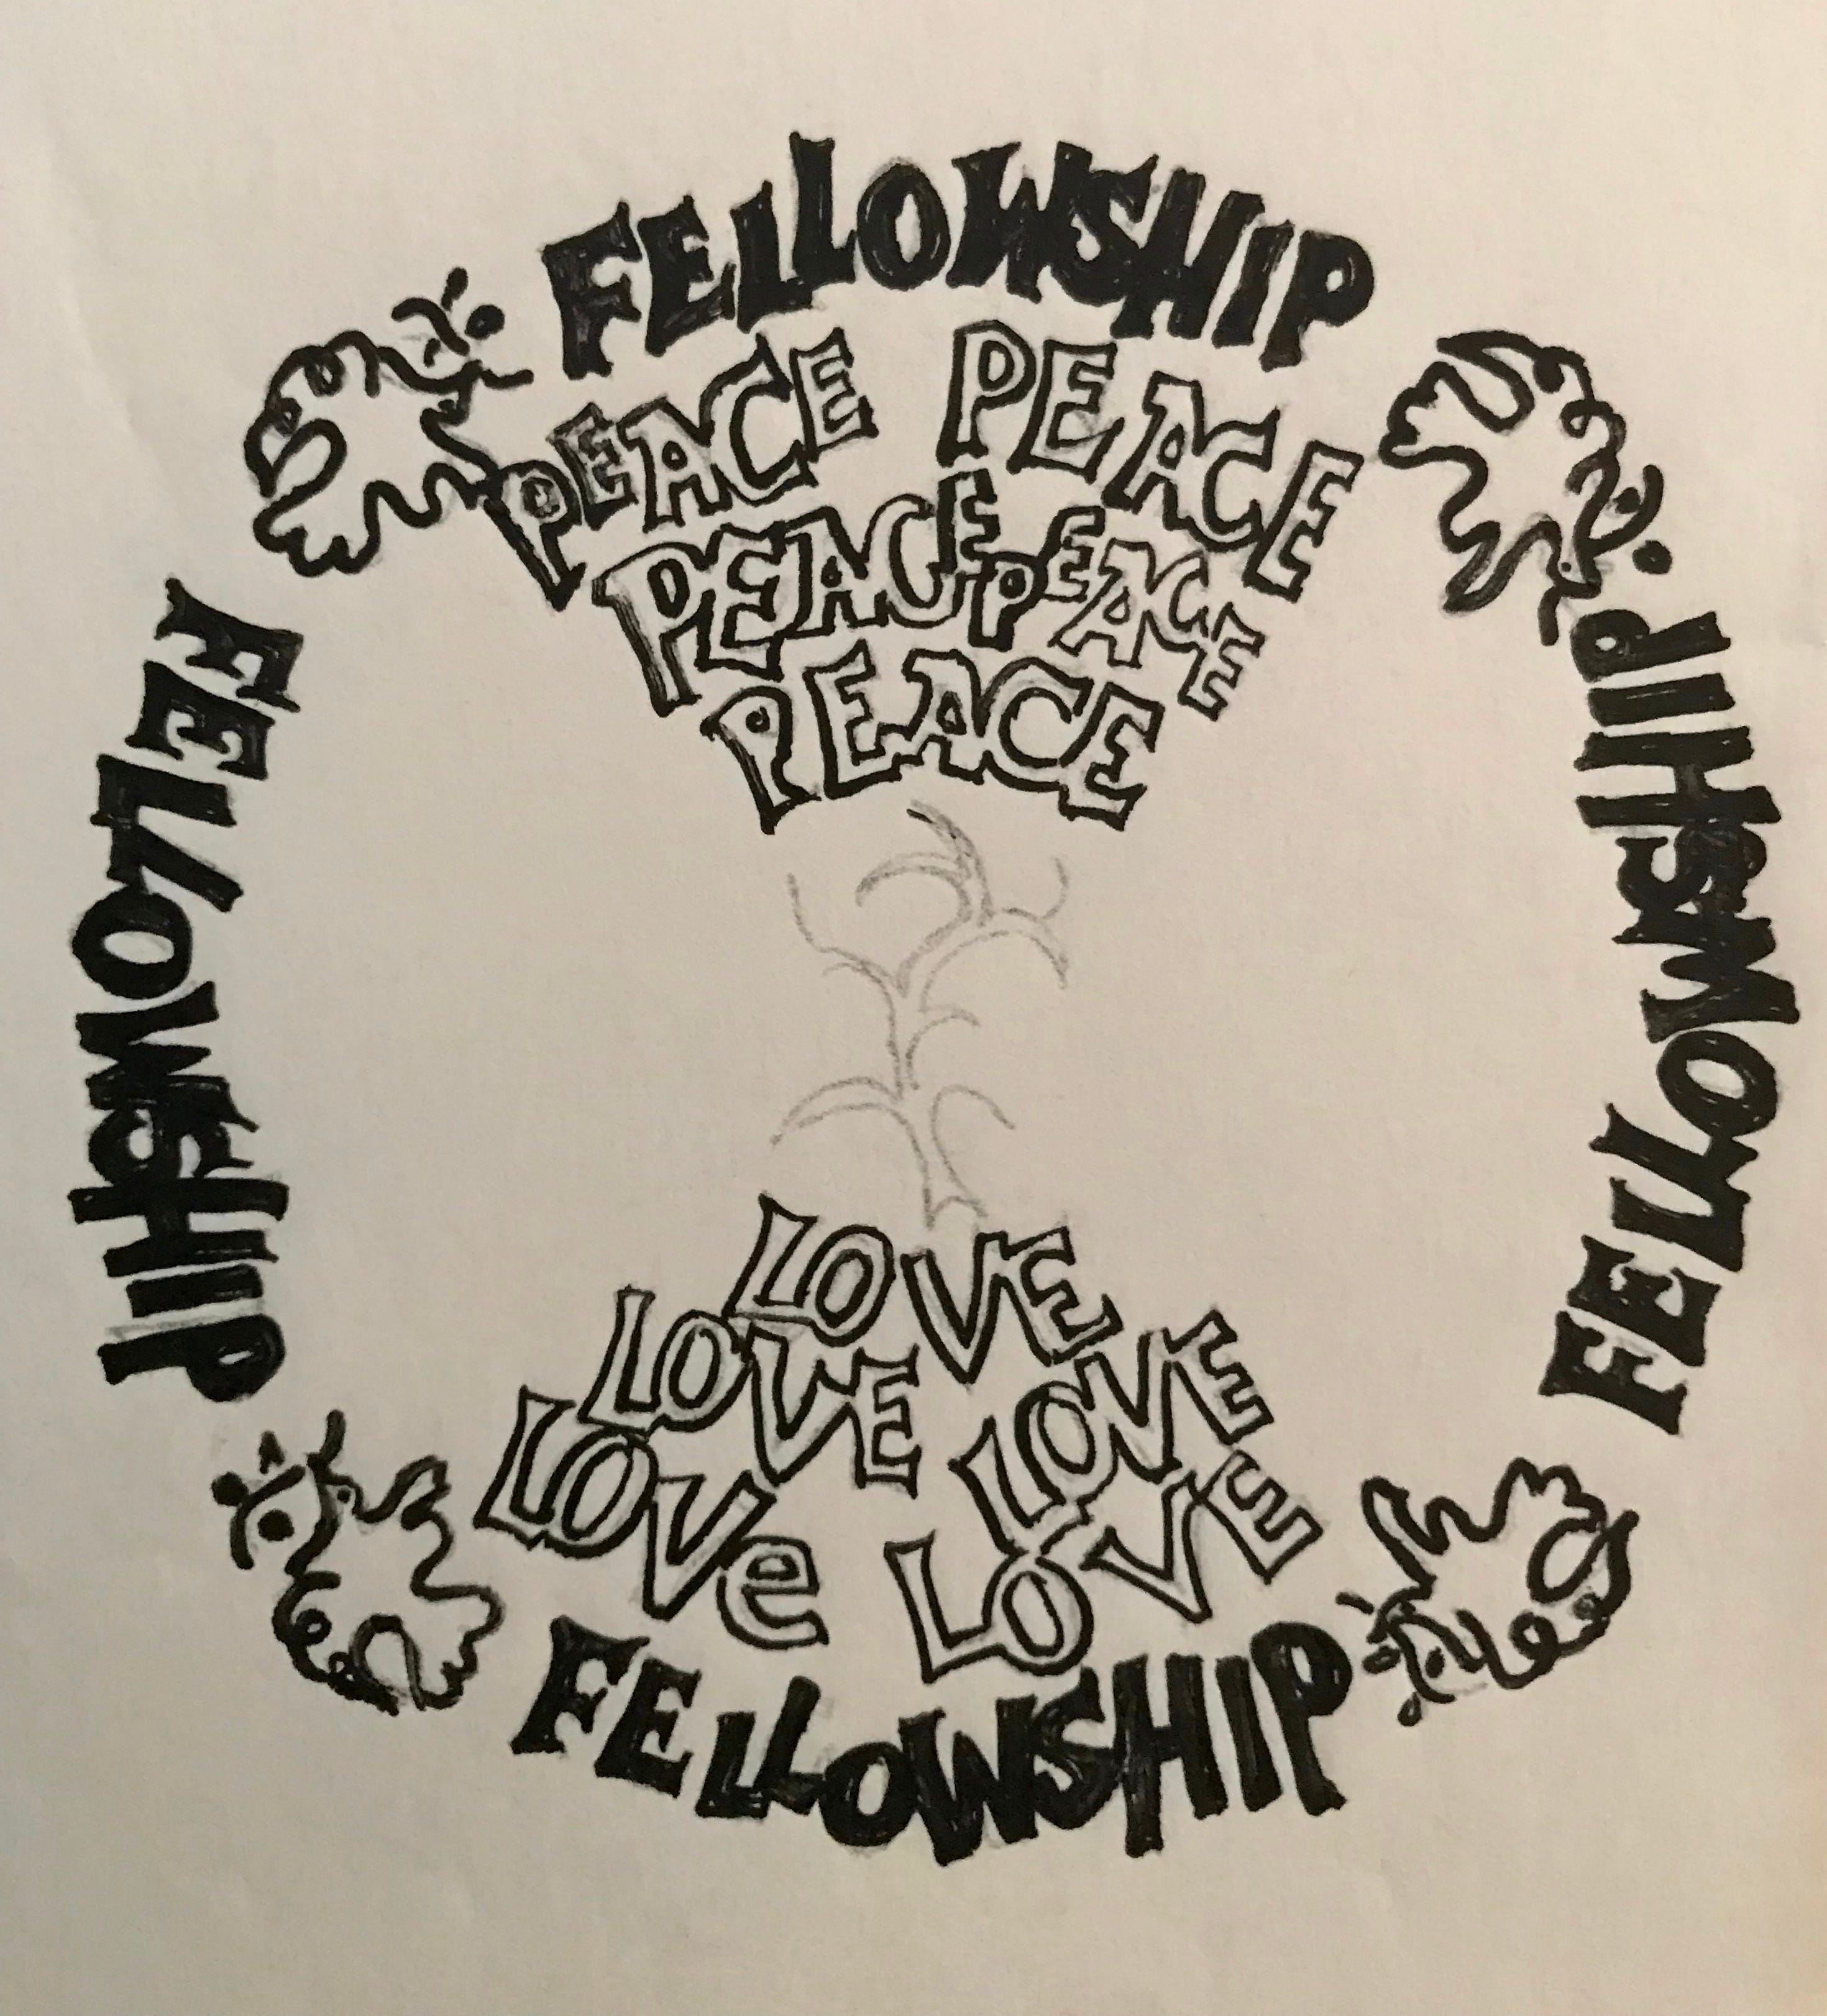 FELLOWSHIP
PEACE PEACE
PEACE PEACE
PEACE
FELLOWSHIP
FELLOWSHIP
LOVE
LOVE LOVE
LOVe LOVE
FELLOWSHIP